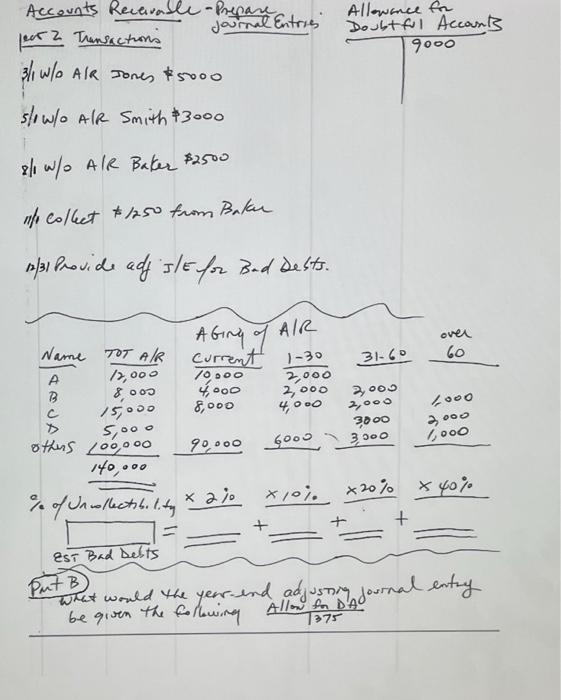 Accounts Receivable - Prepare Journal Entries
Allowance for Doubtful Accounts
9000
Transactions
3/1 W/O A/R Jones $5000
5/1 W/O A/R Smith $3000
8/1 W/O A/R Baker $2500
11/1 Collect $1250 from Baker
12/31 Provide adj J/E for Bad Debts.
Aging of A/R
Name TOT A/R Current 1-30 31-60 over 60
A 12,000 10,000 2,000
B 8,000 4,000 2,000 2,000
C 15,000 8,000 4,000 2,000 1,000
D 5,000 3000 2,000
others 100,000 90,000 6000 3,000 1,000
140,000
% of Uncollectib.lity x 2% x 10% x 20% x 40%
= + + +
EST Bad Debts
Part B
What would the year-end adjusting journal entry
be given the following Allow for DA
1375